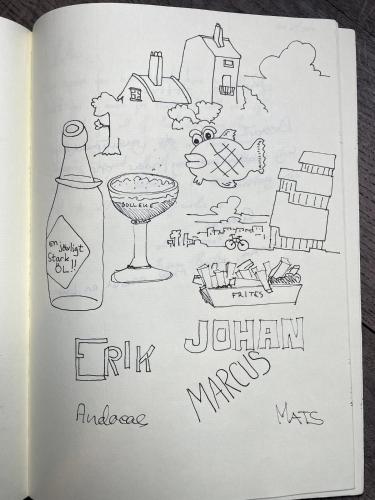 BOLLEKE
en jävligt
Stark
ÖL!!
FRITES
ERIK
JOHAN
MARCUS
Andreas
MATS